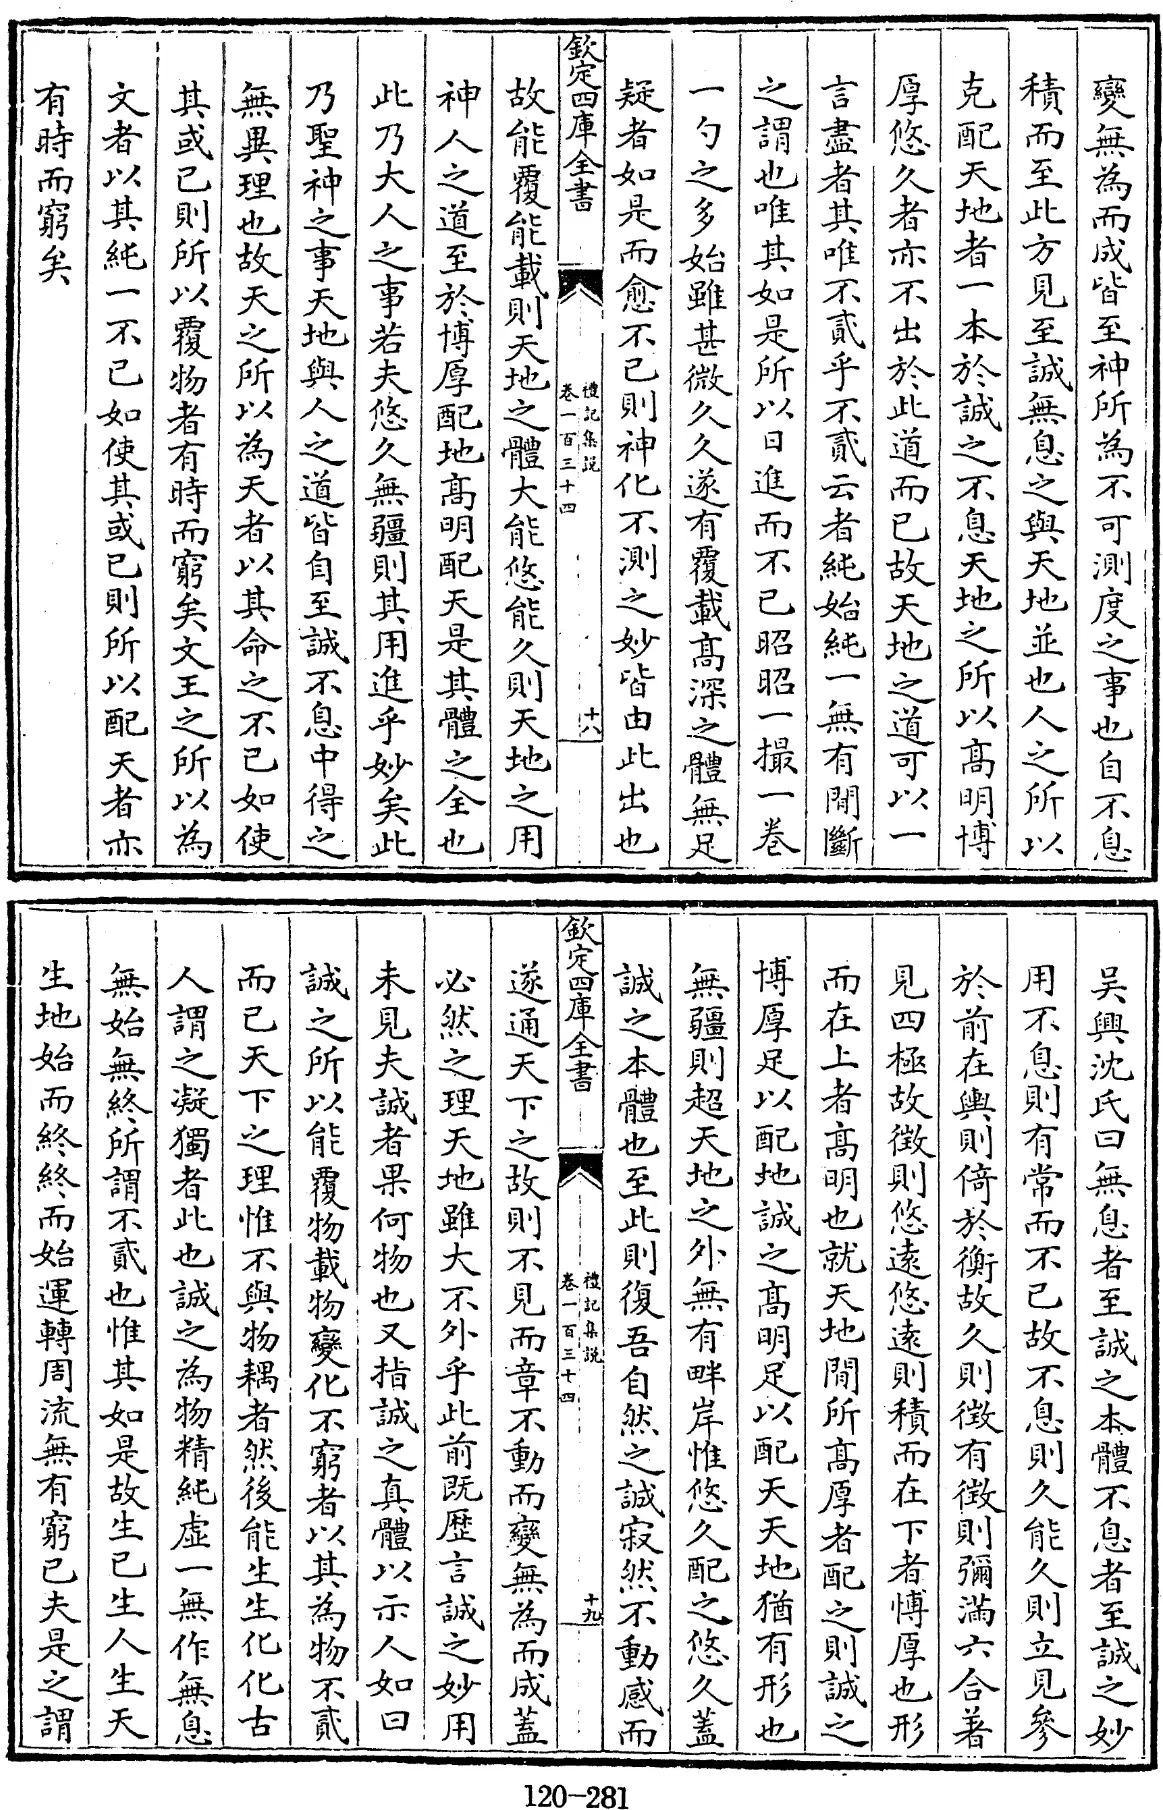 變無為而成皆至神所為不可測度之事也自不息
積而至此方見至誠無息之與天地並也人之所以
克配天地者一本於誠之不息天地之所以髙明博
厚悠久者亦不出於此道而已故天地之道可以一
言盡者其唯不貳乎不貳云者純始純一無有間斷
之謂也唯其如是所以日進而不已昭昭一撮一巻
一勺之多始雖甚微久久遂有覆載髙深之體無足
疑者如是而愈不已則神化不測之妙皆由此出也
欽定四庫全書
禮記集説
卷一百三十四
十八
故能覆能載則天地之體大能悠能久則天地之用
神人之道至於博厚配地髙明配天是其體之全也
此乃大人之事若夫悠久無疆則其用進乎妙矣此
乃聖神之事天地與人之道皆自至誠不息中得之
無異理也故天之所以為天者以其命之不已如使
其或已則所以覆物者有時而窮矣文王之所以為
文者以其純一不已如使其或已則所以配天者亦
有時而窮矣
吴興沈氏曰無息者至誠之本體不息者至誠之妙
用不息則有常而不已故不息則久能久則立見參
於前在輿則倚於衡故久則徴有徴則彌滿六合著
見四極故徴則悠逺悠逺則積而在下者博厚也形
而在上者髙明也就天地間所髙厚者配之則誠之
博厚足以配地誠之髙明足以配天天地猶有形也
無疆則超天地之外無有畔岸惟悠久配之悠久蓋
誠之本體也至此則復吾自然之誠寂然不動感而
欽定四庫全書
禮記集説
卷一百三十四
十九
遂通天下之故則不見而章不動而變無為而成蓋
必然之理天地雖大不外乎此前既歴言誠之妙用
未見夫誠者果何物也又指誠之真體以示人如曰
誠之所以能覆物載物變化不窮者以其為物不貳
而已天下之理惟不與物耦者然後能生生化化古
人謂之凝獨者此也誠之為物精純虚一無作無息
無始無終所謂不貳也惟其如是故生已生人生天
生地始而終終而始運轉周流無有窮已夫是之謂
120-281